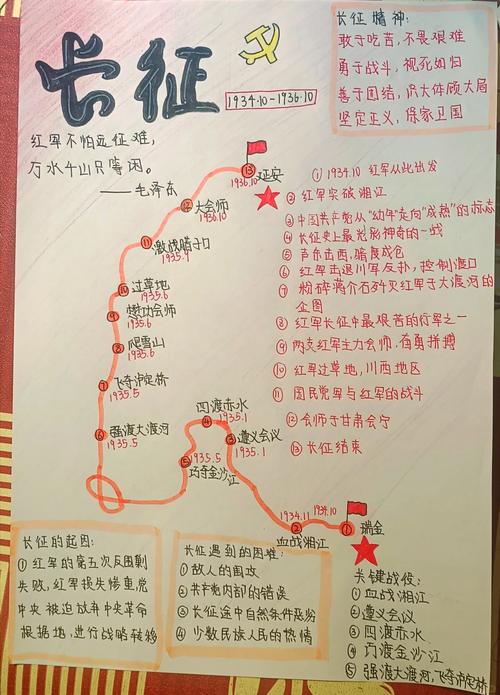 长征
1934.10-1936.10
红军不怕远征难，
万水千山只等闲。
——毛泽东
长征精神：
敢于吃苦，不畏艰难
勇于战斗，视死如归
善于团结，识大体顾大局
坚定正义，保家卫国
⑬ 延安
1936.10
⑫ 大会师
1936.10
⑪ 激战腊子口
1935.9
⑩ 过草地
1935.6
⑨ 懋功会师
1935.6
⑧ 爬雪山
1935.6
⑦ 飞夺泸定桥
1935.5
⑥ 强渡大渡河
1935.5
⑤ 1935.5
巧夺金沙江
四渡赤水
④ 1935.1
③ 遵义会议
1935.1
1934.11
② 血战湘江
1934.10
① 瑞金
① 1934.10 红军从此出发
② 红军突破湘江
③ 中国共产党从“幼年”走向“成熟”的标志
④ 长征史上最光彩神奇的一战
⑤ 声东击西，暗度成仓
⑥ 红军击退川军反扑，控制渡口
⑦ 粉碎蒋介石歼灭红军于大渡河的
企图
⑧ 红军长征中最艰苦的行军之一
⑨ 两支红军主力会师，奋勇拼搏
⑩ 红军过草地，川西地区
⑪ 国民党军与红军的战斗
⑫ 会师于甘肃会宁
⑬ 长征结束
长征的起因：
① 红军的第五次反围剿
失败，红军损失惨重，党
中央被迫放弃中央革命
根据地，进行战略转移
长征遇到的困难：
① 敌人的围攻
② 共产党内部的错误
③ 长征途中自然条件恶劣
④ 少数民族人民的热情
关键战役：
① 血战湘江
② 遵义会议
③ 四渡赤水
④ 巧渡金沙江
⑤ 强渡大渡河，飞夺泸定桥